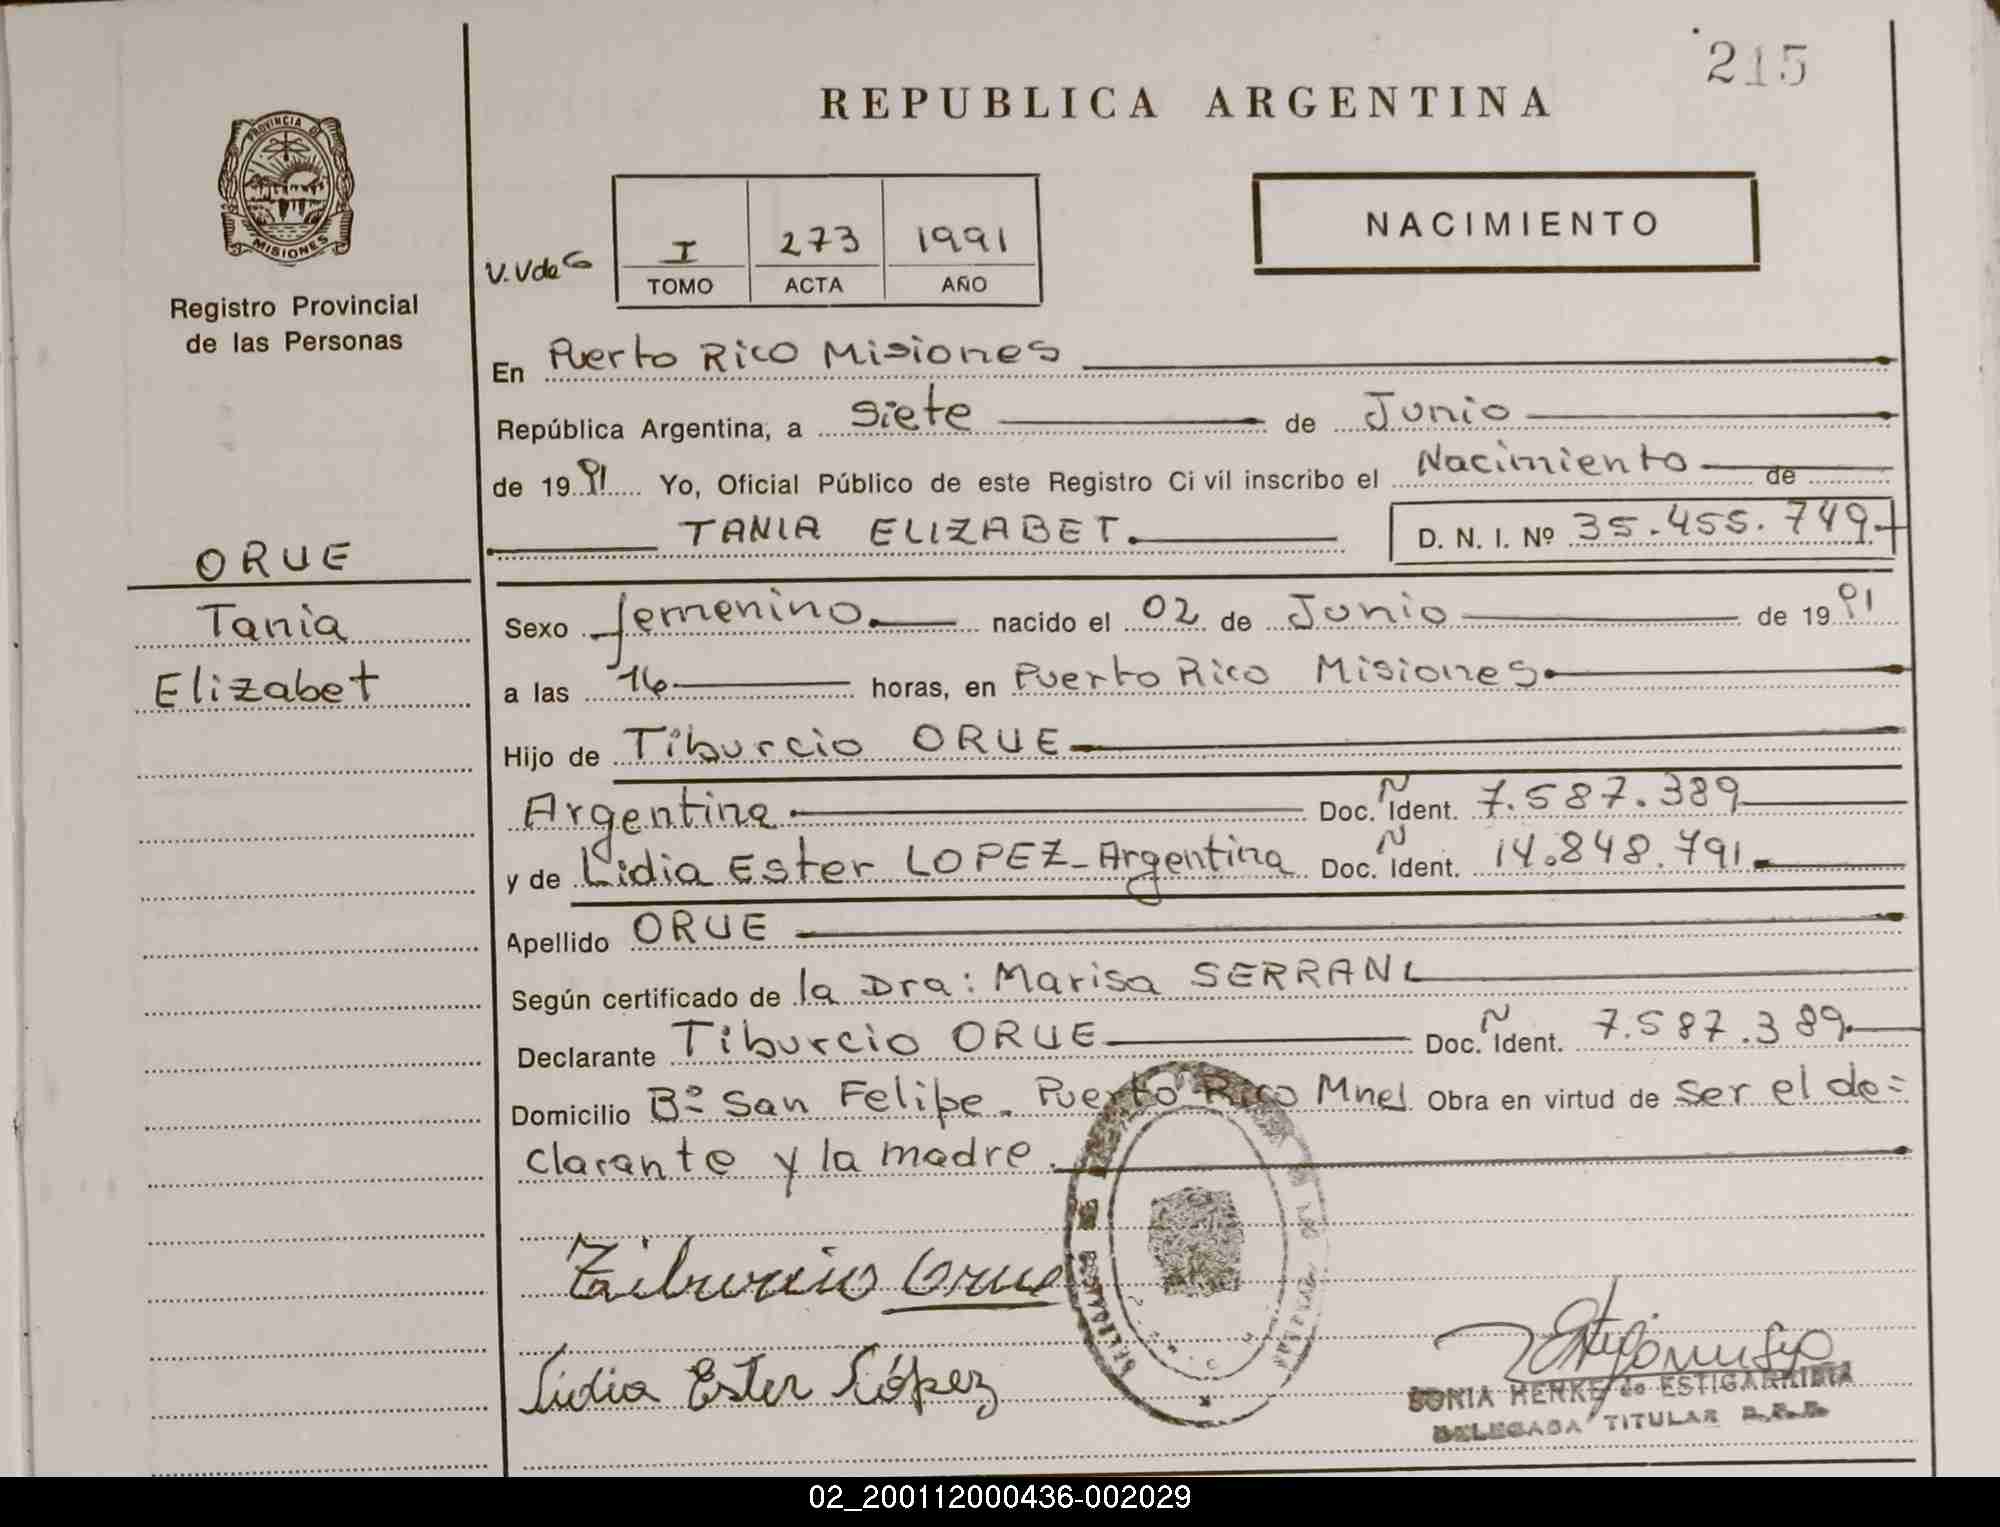 215
REPUBLICA ARGENTINA
PROVINCIA DE MISIONES
Registro Provincial
de las Personas
V. Vda
I 273 1991
TOMO ACTA AÑO
NACIMIENTO
En Puerto Rico Misiones
República Argentina, a siete de Junio
de 1991 Yo, Oficial Público de este Registro Civil inscribo el Nacimiento de
TANIA ELIZABET. D. N. I. Nº 35.455.749.-
ORUE
Tania
Elizabet
Sexo femenino. nacido el 02 de Junio de 1991
a las 16 horas, en Puerto Rico Misiones.
Hijo de Tiburcio ORUE
Argentina Doc. Ñ Ident. 7.587.389
y de Lidia Ester LOPEZ - Argentina Doc. Ñ Ident. 14.848.791.
Apellido ORUE
Según certificado de la Dra: Marisa SERRANI
Declarante Tiburcio ORUE Doc. Ñ Ident. 7.587.389.
Domicilio Bº San Felipe. Puerto Rico Mnes Obra en virtud de ser el de=
clarante y la madre.
Tiburcio Orue
Lidia Ester López
SONIA HENKE de ESTIGARRIBIA
DELEGADA TITULAR
02_200112000436-002029